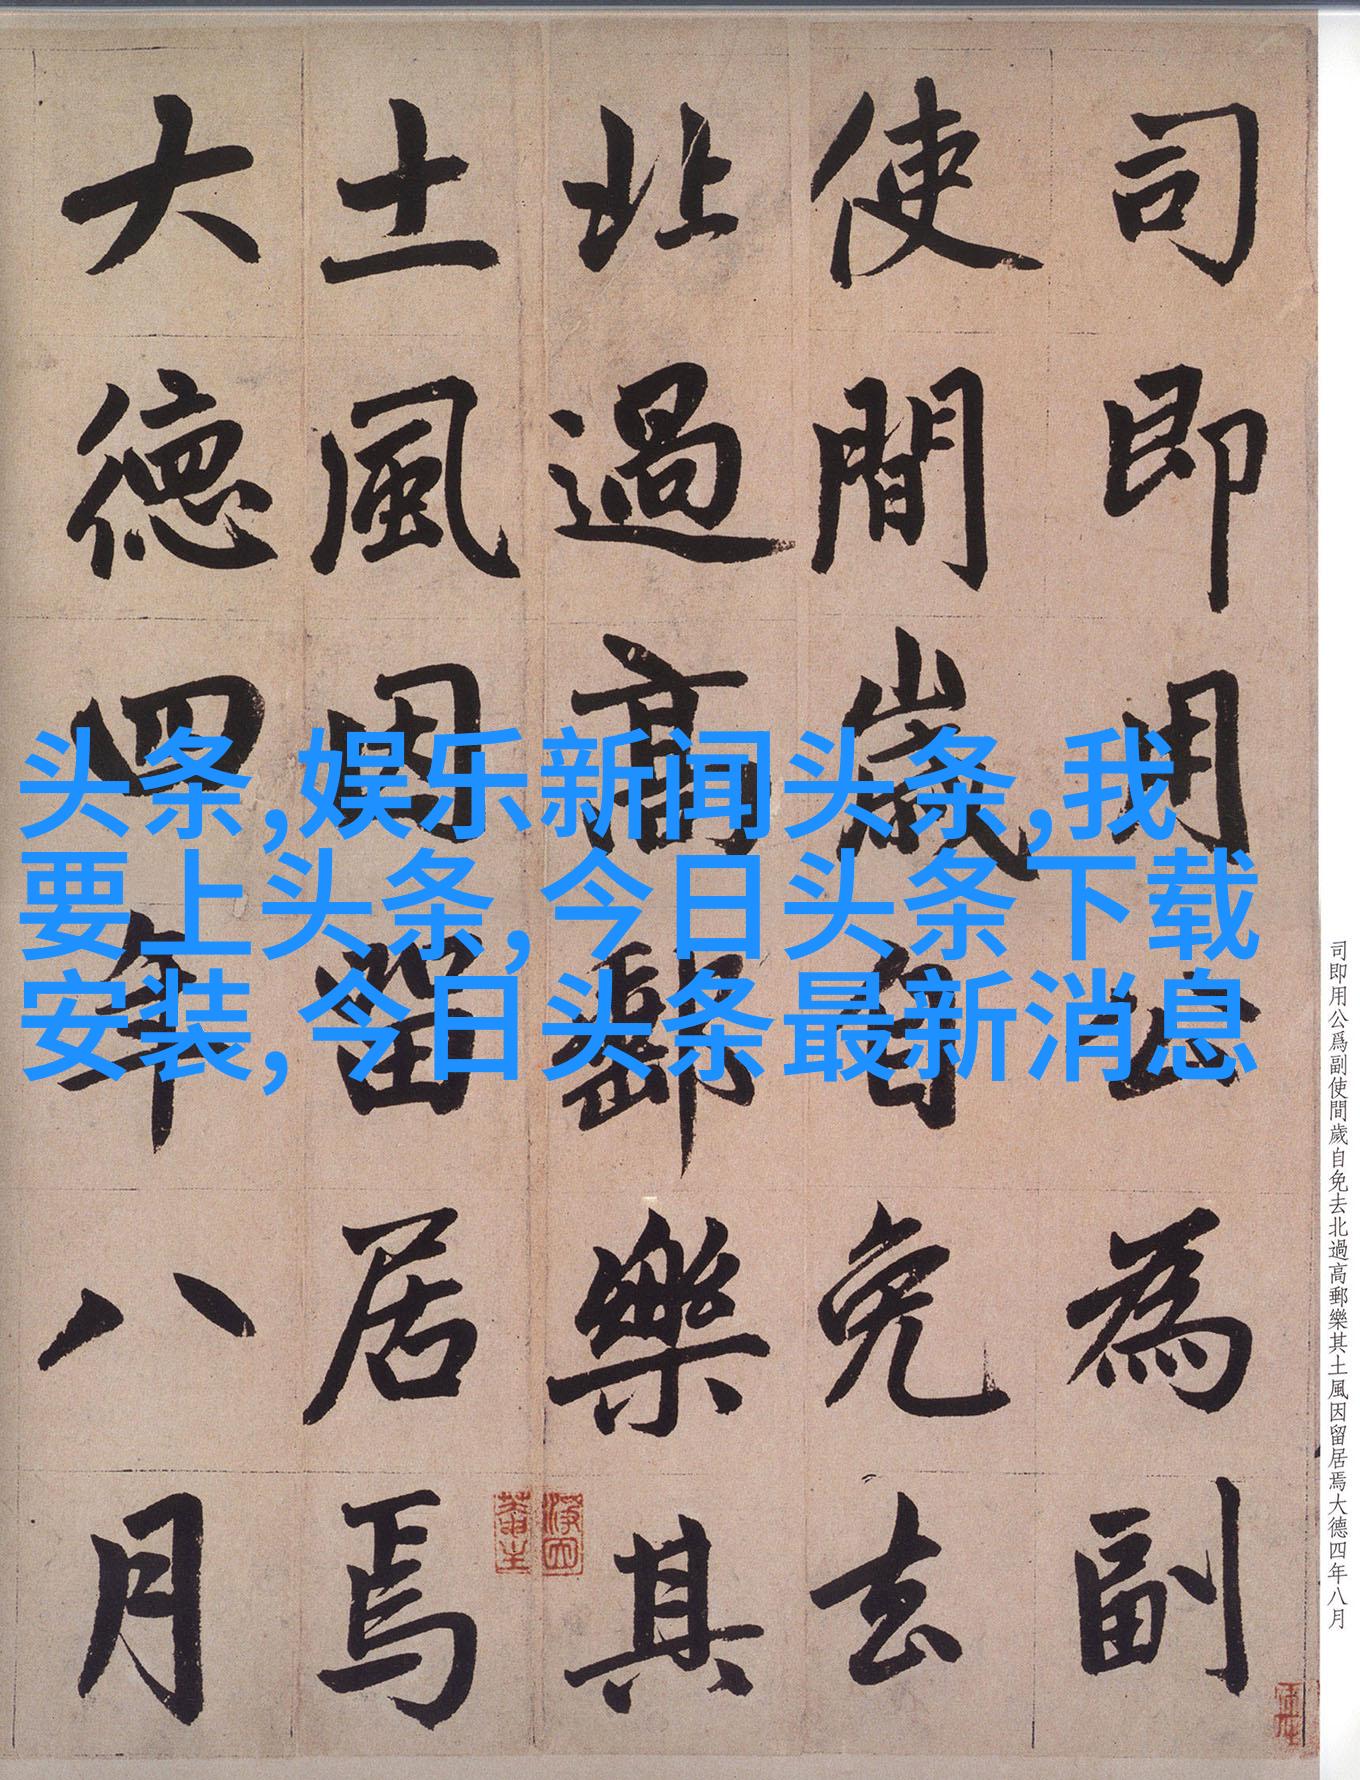 司即用公為副
使間歲自免去
北過高郵樂其
土風因留居焉
大德四年八月
头条,娱乐新闻头条,我
要上头条,今日头条下载
安装,今日头条最新消息
司即用公爲副使間歲自免去北過高郵樂其土風因留居焉大德四年八月